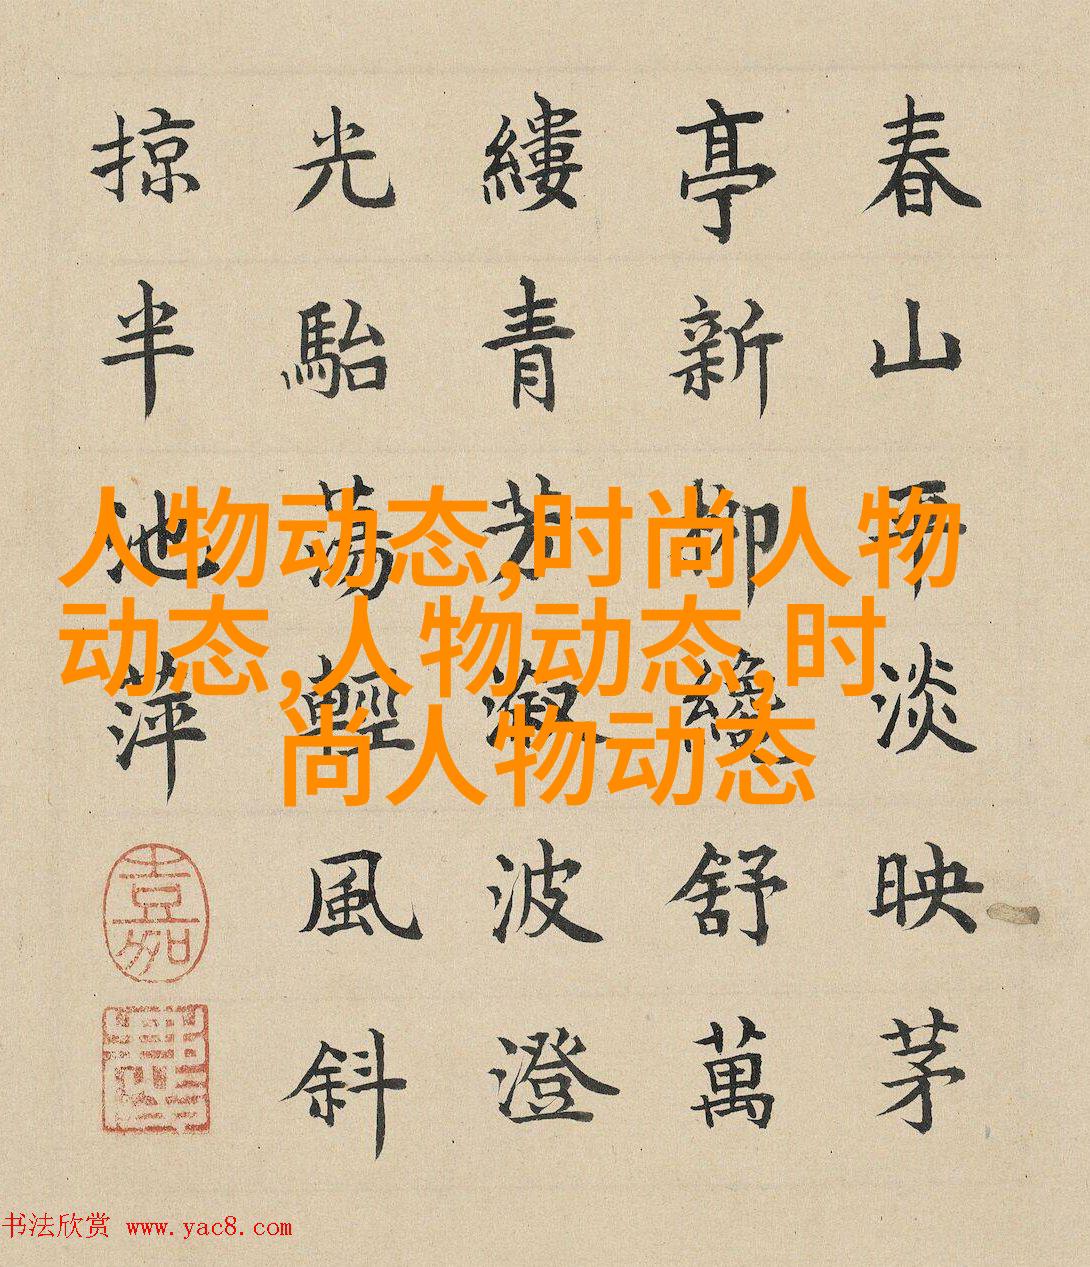 春山淡映茅
亭新柳纔舒萬
縷青芳溆波澄
光駘蕩輕風斜
掠半池萍
嘉
人物动态,时尚人物
动态,人物动态,时
尚人物动态
书法欣赏 www.yac8.com